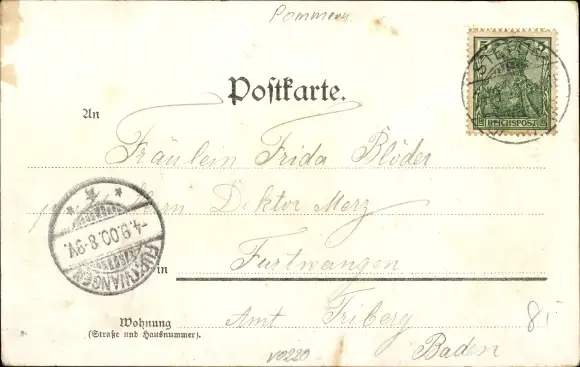 Pommern
5
REICHSPOST
Postkarte.
An
Fräulein Frida Blöder
Herrn Doktor Merz
-4.9.00.8-9V.
FURTWANGEN
in
Furtwangen
Wohnung
(Straße und Hausnummer).
Amt Triberg
Baden
85
V0220